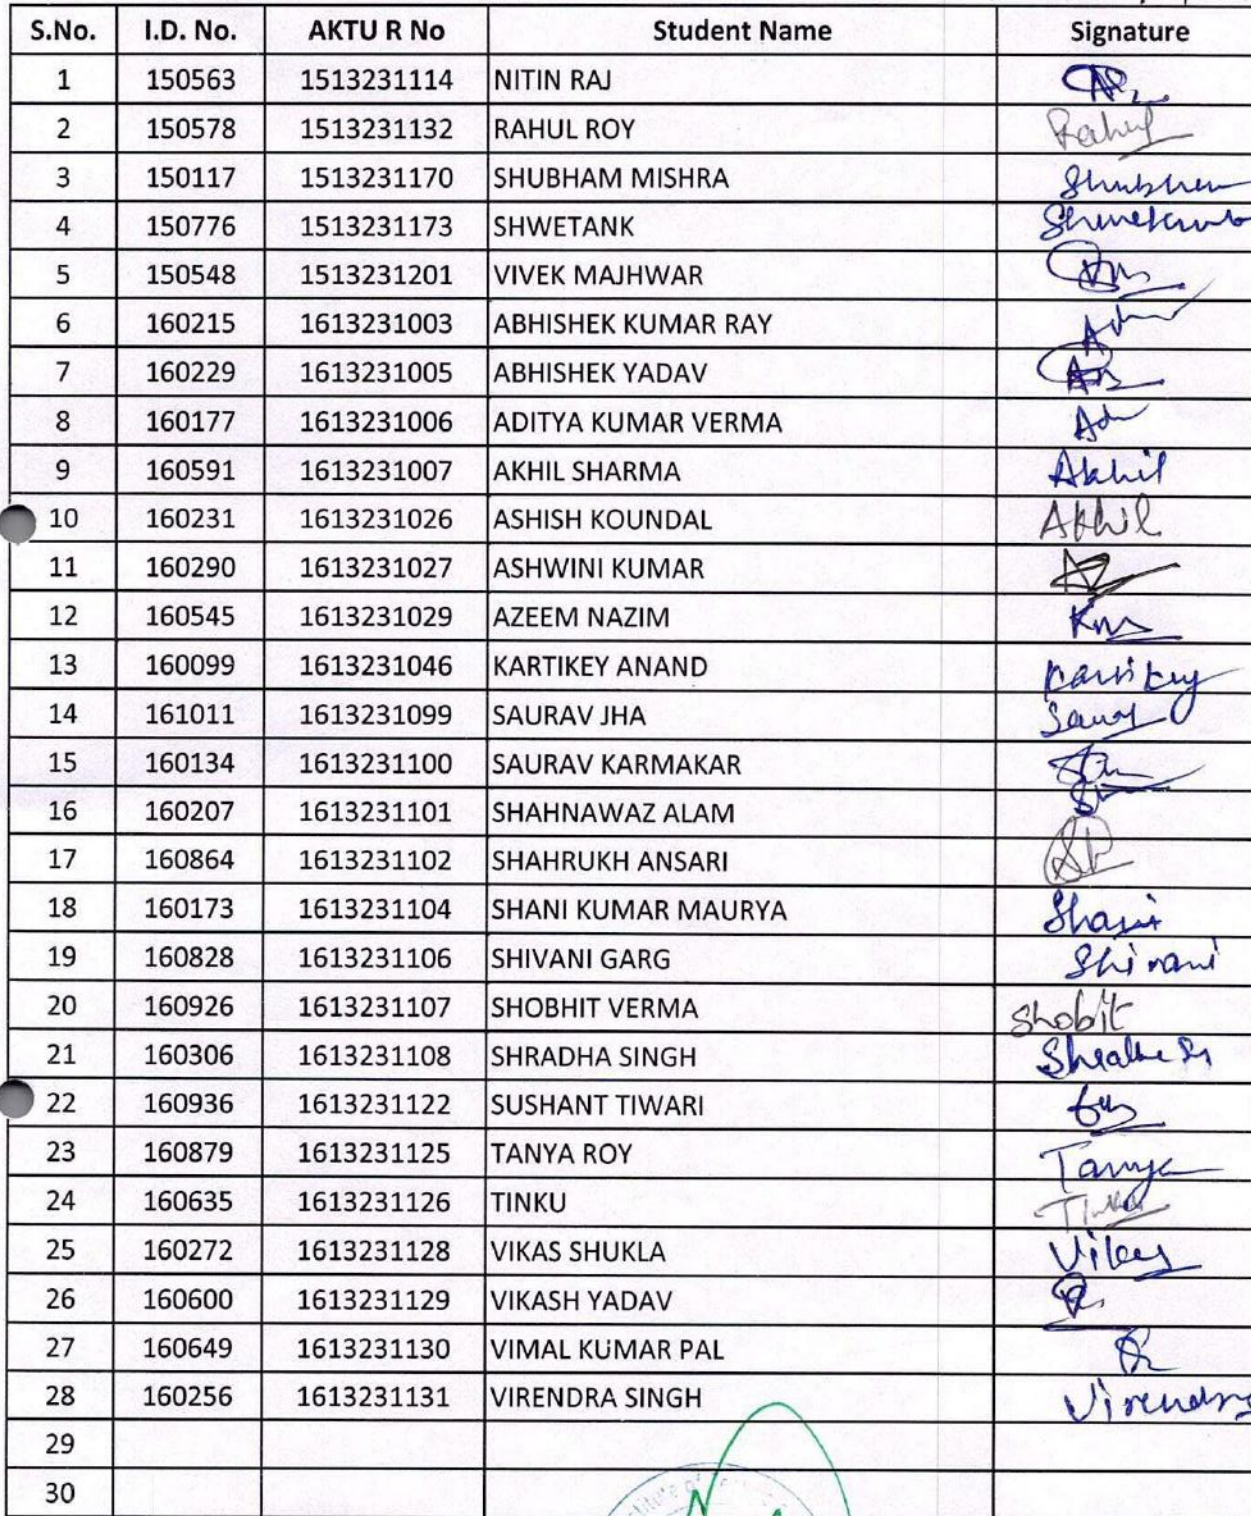 S.No. I.D. No. AKTU R No Student Name Signature
1 150563 1513231114 NITIN RAJ
2 150578 1513231132 RAHUL ROY Rahul
3 150117 1513231170 SHUBHAM MISHRA Shubham
4 150776 1513231173 SHWETANK Shwetank
5 150548 1513231201 VIVEK MAJHWAR
6 160215 1613231003 ABHISHEK KUMAR RAY
7 160229 1613231005 ABHISHEK YADAV
8 160177 1613231006 ADITYA KUMAR VERMA
9 160591 1613231007 AKHIL SHARMA Akhil
10 160231 1613231026 ASHISH KOUNDAL Akhil
11 160290 1613231027 ASHWINI KUMAR
12 160545 1613231029 AZEEM NAZIM
13 160099 1613231046 KARTIKEY ANAND Kartikey
14 161011 1613231099 SAURAV JHA
15 160134 1613231100 SAURAV KARMAKAR
16 160207 1613231101 SHAHNAWAZ ALAM
17 160864 1613231102 SHAHRUKH ANSARI
18 160173 1613231104 SHANI KUMAR MAURYA Shani
19 160828 1613231106 SHIVANI GARG Shivani
20 160926 1613231107 SHOBHIT VERMA Shobit
21 160306 1613231108 SHRADHA SINGH
22 160936 1613231122 SUSHANT TIWARI
23 160879 1613231125 TANYA ROY Tanya
24 160635 1613231126 TINKU Tinku
25 160272 1613231128 VIKAS SHUKLA Vikas
26 160600 1613231129 VIKASH YADAV
27 160649 1613231130 VIMAL KUMAR PAL
28 160256 1613231131 VIRENDRA SINGH Virendra
29
30